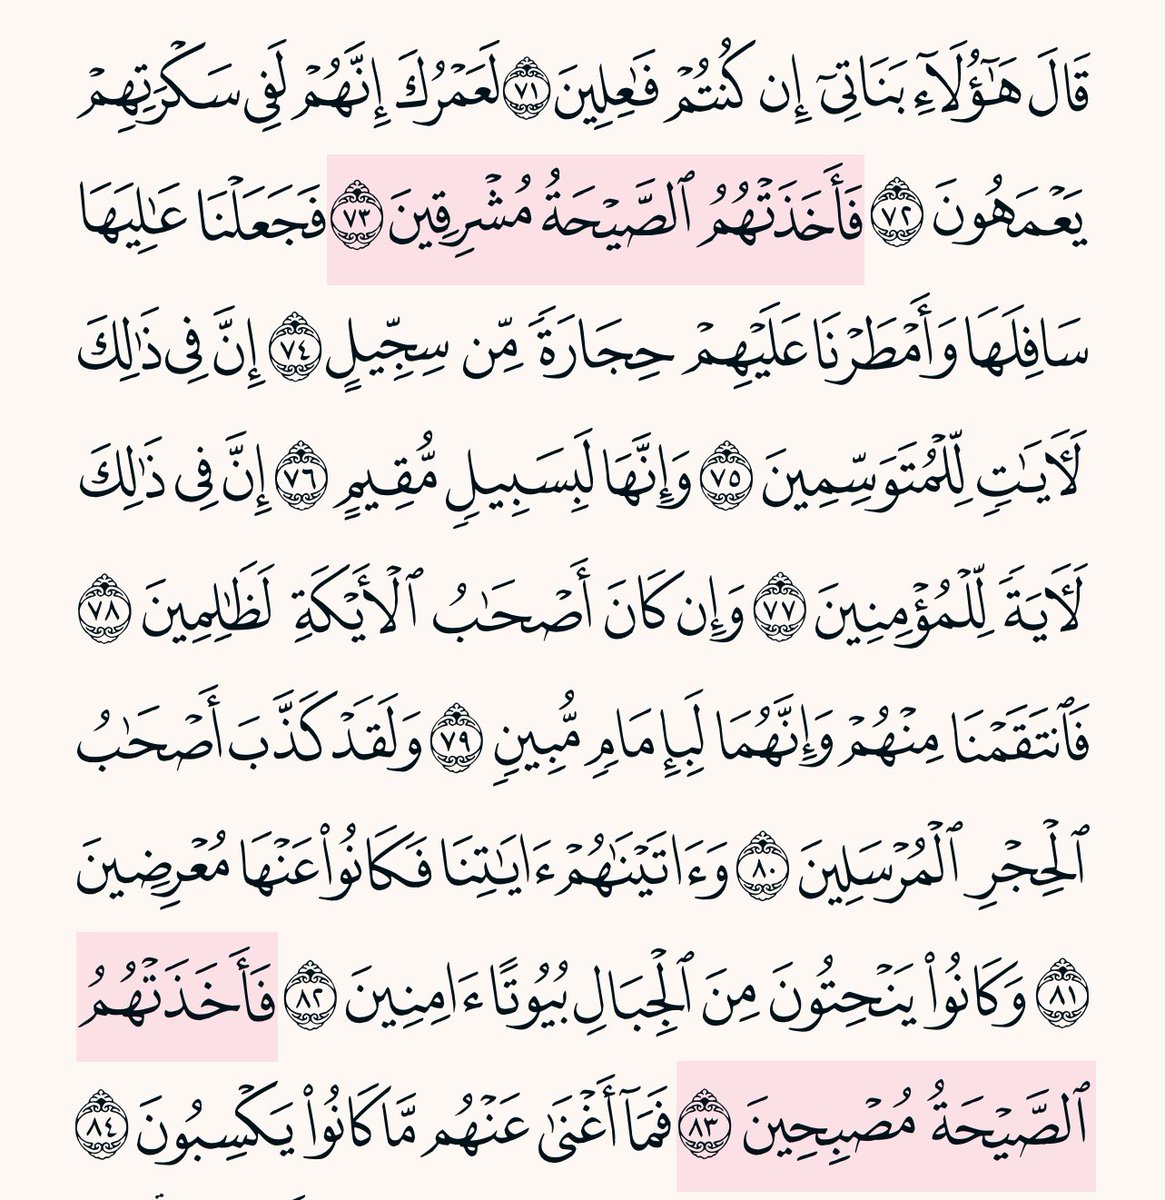 قَالَ هَٰٓؤُلَآءِ بَنَاتِىٓ إِن كُنتُمْ فَٰعِلِينَ ٧١ لَعَمْرُكَ إِنَّهُمْ لَفِى سَكْرَتِهِمْ
يَعْمَهُونَ ٧٢ فَأَخَذَتْهُمُ ٱلصَّيْحَةُ مُشْرِقِينَ ٧٣ فَجَعَلْنَا عَٰلِيَهَا
سَافِلَهَا وَأَمْطَرْنَا عَلَيْهِمْ حِجَارَةً مِّن سِجِّيلٍ ٧٤ إِنَّ فِى ذَٰلِكَ
لَءَايَٰتٍ لِّلْمُتَوَسِّمِينَ ٧٥ وَإِنَّهَا لَبِسَبِيلٍ مُّقِيمٍ ٧٦ إِنَّ فِى ذَٰلِكَ
لَءَايَةً لِّلْمُؤْمِنِينَ ٧٧ وَإِن كَانَ أَصْحَٰبُ ٱلْأَيْكَةِ لَظَٰلِمِينَ ٧٨
فَٱنتَقَمْنَا مِنْهُمْ وَإِنَّهُمَا لَبِإِمَامٍ مُّبِينٍ ٧٩ وَلَقَدْ كَذَّبَ أَصْحَٰبُ
ٱلْحِجْرِ ٱلْمُرْسَلِينَ ٨٠ وَءَاتَيْنَٰهُمْ ءَايَٰتِنَا فَكَانُوا۟ عَنْهَا مُعْرِضِينَ
٨١ وَكَانُوا۟ يَنْحِتُونَ مِنَ ٱلْجِبَالِ بُيُوتًا ءَامِنِينَ ٨٢ فَأَخَذَتْهُمُ
ٱلصَّيْحَةُ مُصْبِحِينَ ٨٣ فَمَآ أَغْنَىٰ عَنْهُم مَّا كَانُوا۟ يَكْسِبُونَ ٨٤